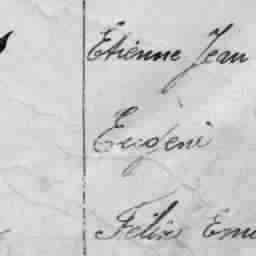 Etienne Jean
Eugène
Félix Em